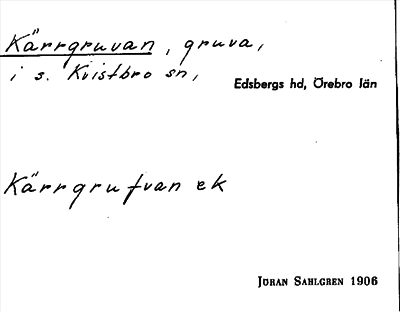 Kärrgruvan, gruva,
i s. Kvistbro sn,
Edsbergs hd, Örebro län
Kärrgrufvan ek
Jöran Sahlgren 1906